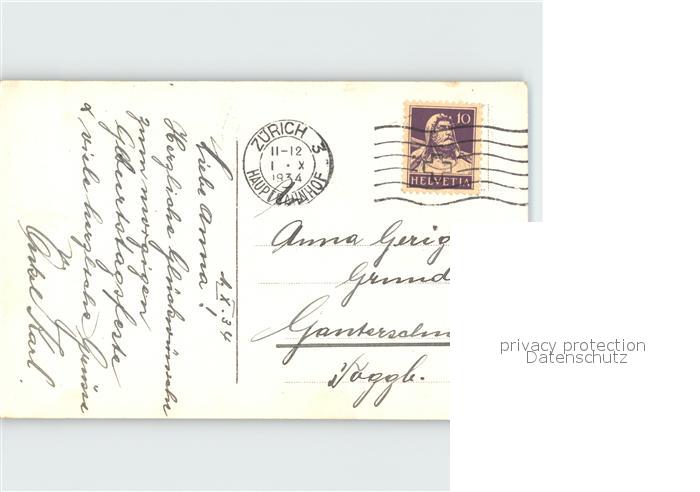 1.X.34
Liebe Anna!
Herzliche Glückwünsche
zum morgigen
Geburtstagsfeste
& viele herzliche Grüsse
Onkel Karl.
ZÜRICH 3
11-12
1·X
1934
HAUPTBAHNHOF
10
HELVETIA
Anna Gerig
Grund
Ganterschw
Toggb.
privacy protection
Datenschutz